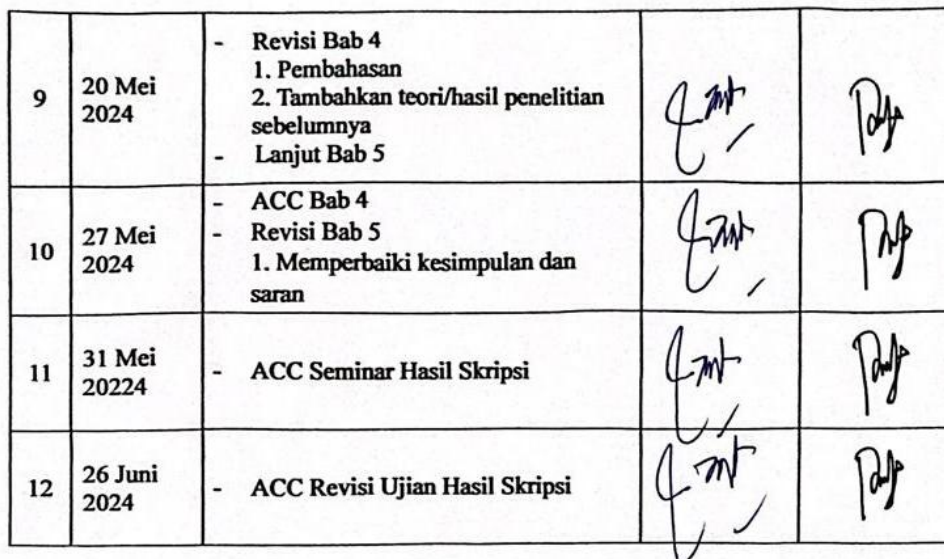 9
20 Mei
2024
- Revisi Bab 4
1. Pembahasan
2. Tambahkan teori/hasil penelitian
sebelumnya
- Lanjut Bab 5
10
27 Mei
2024
- ACC Bab 4
- Revisi Bab 5
1. Memperbaiki kesimpulan dan
saran
11
31 Mei
20224
- ACC Seminar Hasil Skripsi
12
26 Juni
2024
- ACC Revisi Ujian Hasil Skripsi